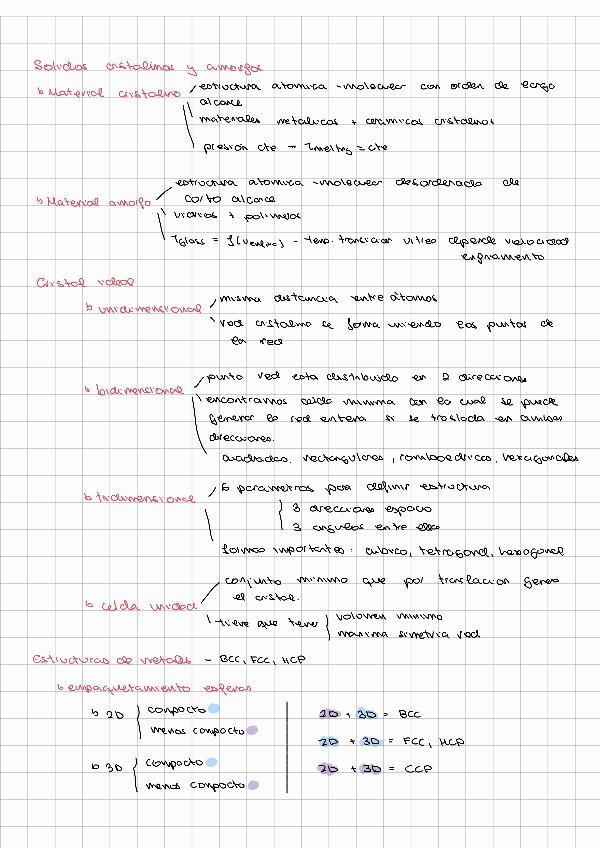 Solidos cristalinos y amorfos
↳ Material cristalino
estructura atomica-molecular con orden de largo
alcance
materiales metalicos + ceramicos cristalinos
presión cte → Tmelting = cte
↳ Material amorfo
estructura atomica-molecular desordenada de
corto alcance
vidrios + polimeros
Tglass = f(venfria) - temp. transicion vitrea depende velocidad
enfriamiento
Cristal ideal
↳ unidimensional
misma distancia entre átomos
red cristalina se forma uniendo los puntos de
la red
↳ bidimensional
punto red esta distribuido en 2 direcciones
encontramos celda minima con la cual se puede
generar la red entera si se traslada en ambas
direcciones.
cuadradas, rectangulares, romboedricas, hexagonales
↳ tridimensional
6 parametros para definir estructura
3 direcciones espacio
3 angulos entre ellas
formas importantes: cubico, tetragonal, hexagonal
↳ celda unidad
conjunto minimo que por translacion genera
el cristal.
tiene que tener
volumen minimo
maxima simetria red
Estructuras de metales - BCC, FCC, HCP
↳ empaquetamiento esferas
↳ 2D
compacto
menos compacto
↳ 3D
compacto
menos compacto
2D + 3D = BCC
2D + 3D = FCC, HCP
2D + 3D = CCP